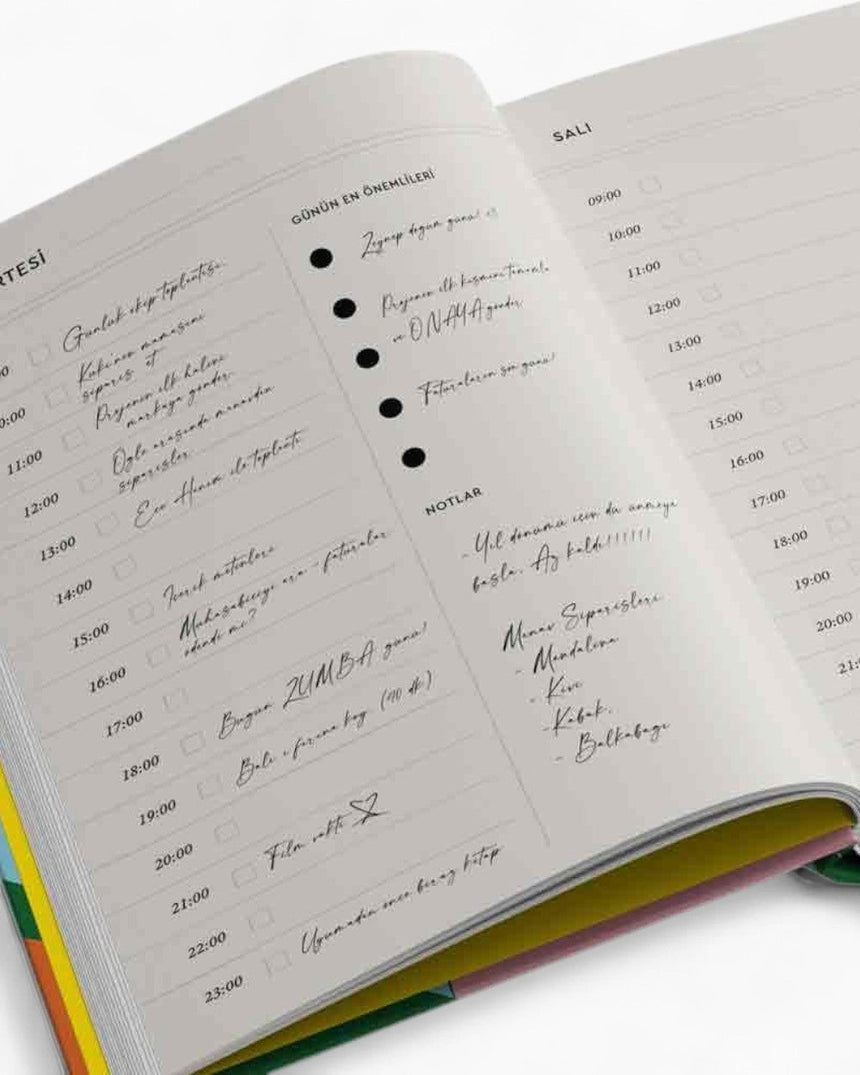 RTESİ
Günlük ekip toplantısı.
10:00
Kuki'nin mamasını
sipariş et
11:00
Projenin ilk halini
markaya gönder.
12:00
Öğle arasında manavdan
siparişler
13:00
Ece Hanım ile toplantı
14:00
15:00
İçerik metinleri
16:00
Muhasabeciyi ara - faturalar
ödendi mi?
17:00
18:00
Bugün ZUMBA günü!
19:00
fırına koy. (40 dk.)
20:00
21:00
Film vakti
22:00
23:00
Uyumadan önce biraz kitap
GÜNÜN EN ÖNEMLİLERİ
Zeynep doğum günü!
Projenin ilk kısmını tamamla
ve ONAYA gönder.
Faturaların son günü!
NOTLAR
- Yıl dönümü için düşünmeye
başla. Az kaldı!!!!!!
Manav Siparişleri
- Mandalina
- Kivi
- Kabak.
- Balkabağı
SALI
09:00
10:00
11:00
12:00
13:00
14:00
15:00
16:00
17:00
18:00
19:00
20:00